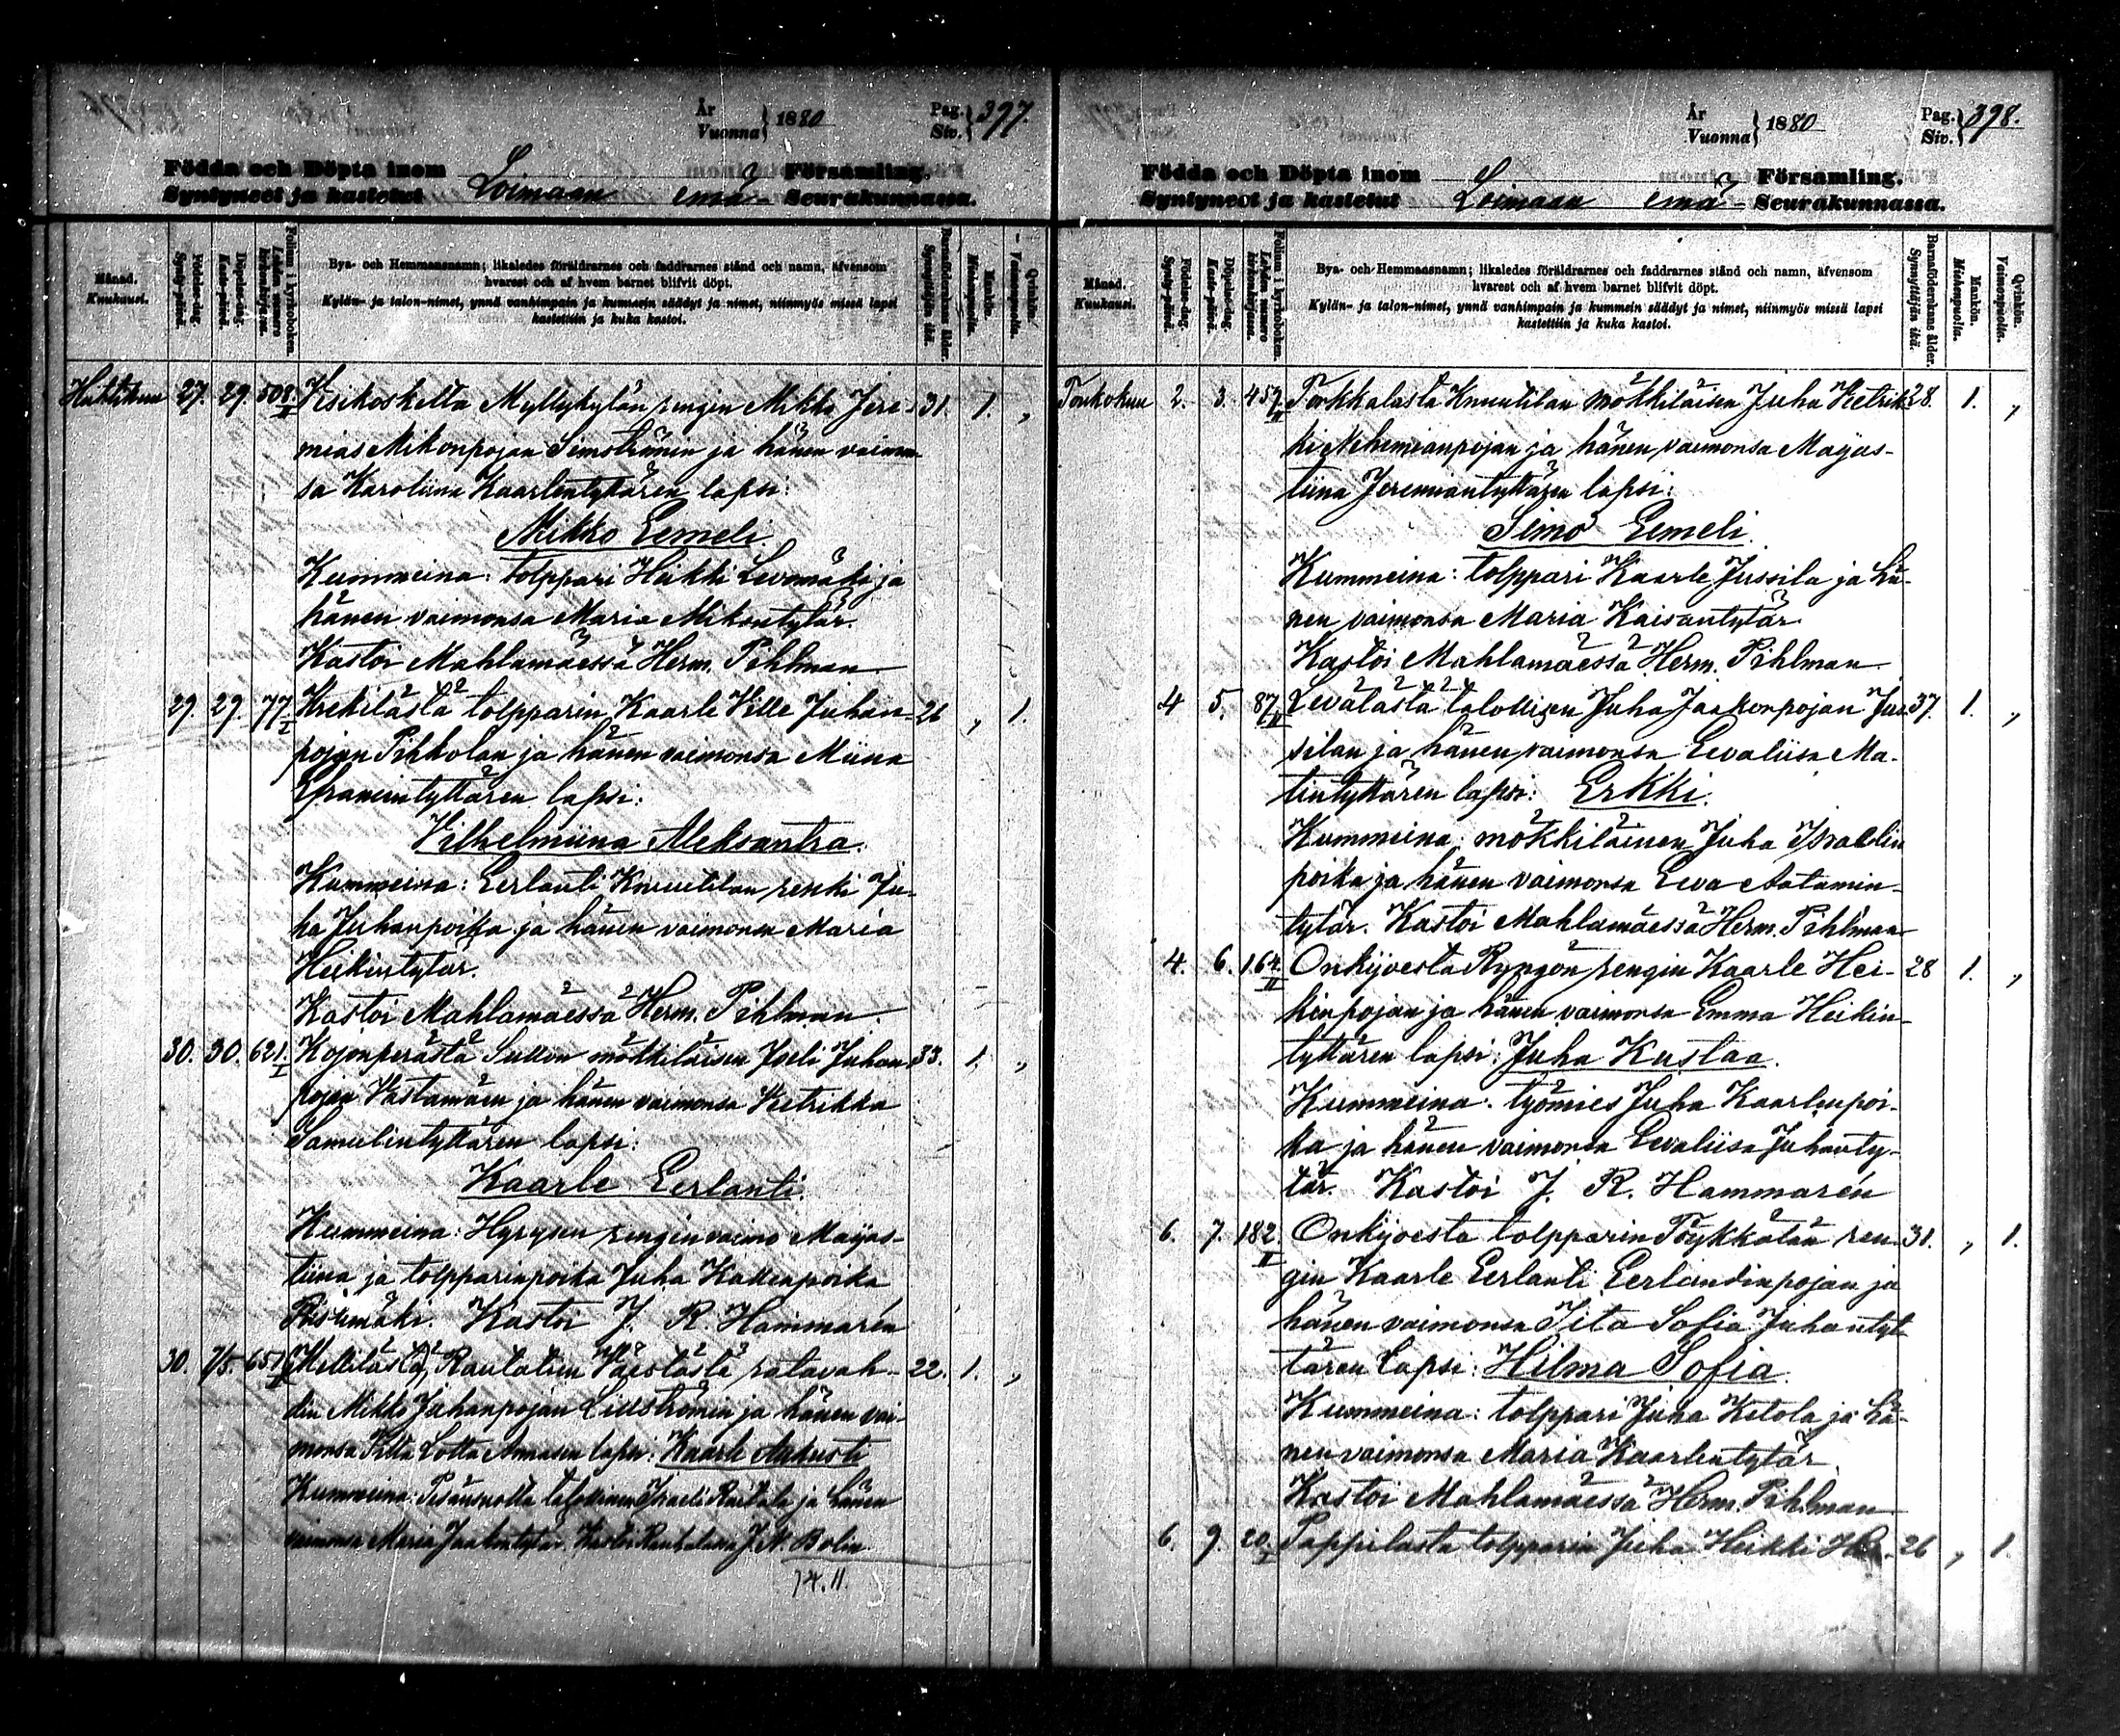 År
Vuonna } 1880
Pag.
Siv. } 397.
Födda och Döpta inom
Syntyneet ja kastetut Loimaan emä- Församling.
Seurakunnassa.
Månad.
Kuukausi.
Födelse-dag.
Synty-päivä.
Döpelse-dag.
Kaste-päivä.
Folium i kyrkoboken.
Lehden numero kirkonkirjassa.
Bya- och Hemmansnamn; likaledes föräldrarnes och faddrarnes stånd och namn, äfvensom
hvarest och af hvem barnet blifvit döpt.
Kylän- ja talon-nimet, ynnä vanhimpain ja kummein säädyt ja nimet, niinmyös missä lapsi
kastettiin ja kuka kastoi.
Barnaföderskans ålder.
Synnyttäjän ikä.
Mankön.
Miehenpuolia.
Qvinkön.
Vaimonpuolia.
Huhtikuu 27. 29. 508. I Myllykylän rengin Mikko Jere- 31. 1. „
mias Mikonpojan ja hänen vaimon-
sa Karoliina Kaarlentyttären lapsi:
Mikko Eemeli.
Kummeina: tolppari Heikki ja
hänen vaimonsa Maria Mikontytär.
Kastoi Mahlamäessä Herm. Pihlman
29. 29. 77. I Krekilästä tolpparin Kaarle Ville Juhan- 26 „ 1.
pojan Pihkolan ja hänen vaimonsa Miina
Efraimintyttären lapsi:
Vilhelmiina Aleksantra.
Kummeina: Eerlanti Knuutilan renki Ju-
ha Juhanpoika ja hänen vaimonsa Maria
Heikintytär.
Kastoi Mahlamäessä Herm. Pihlman.
30. 30. 621. I Kojonperästä Sullon mökkiläisen Joeli Juhan- 33. 1. „
pojan Västämäen ja hänen vaimonsa Ketrikka
Samulintyttären lapsi:
Kaarle Eerlanti.
Kummeina: Hyrysen renginvaimo Maijas-
tiina ja tolpparinpoika Juha Kallenpoika
Kastoi J. R. Hammarén
30. 7/5. 651. Mellilästä, Rautatien Väestästä ratavah- 22. 1. „
din Mikko Juhanpojan Lidströmin ja hänen vai-
monsa Lotta lapsi: Kaarle Aukusti
Kummeina: talollinen Israeli Raitala ja hänen
vaimonsa Maria Jaakontytär. Kastoi J. N. Bolin.
14. 11.
År
Vuonna } 1880
Pag.
Siv. } 398.
Födda och Döpta inom
Syntyneet ja kastetut Loimaan emä- Församling.
Seurakunnassa.
Månad.
Kuukausi.
Födelse-dag.
Synty-päivä.
Döpelse-dag.
Kaste-päivä.
Folium i kyrkoboken.
Lehden numero kirkonkirjassa.
Bya- och Hemmansnamn; likaledes föräldrarnes och faddrarnes stånd och namn, äfvensom
hvarest och af hvem barnet blifvit döpt.
Kylän- ja talon-nimet, ynnä vanhimpain ja kummein säädyt ja nimet, niinmyös missä lapsi
kastettiin ja kuka kastoi.
Barnaföderskans ålder.
Synnyttäjän ikä.
Mankön.
Miehenpuolia.
Qvinkön.
Vaimonpuolia.
Toukokuu 2. 3. 457. II Torkkalasta Knuutilan mökkiläisen Juha Ketrik- 28. 1. „
ki Nehemianpojan ja hänen vaimonsa Maijas-
tiina Jeremiantyttären lapsi:
Simo Eemeli.
Kummeina: tolppari Kaarle Jussila ja hä-
nen vaimonsa Maria Kaisantytär
Kastoi Mahlamäessä Herm. Pihlman
4 5. 87. II Levälästä talollisen Juha Jaakonpojan Jus- 37. 1. „
silan ja hänen vaimonsa Eevaliisa Ma-
tintyttären lapsi: Erkki.
Kummeina: mökkiläinen Juha
poika ja hänen vaimonsa Eeva Aatamin-
tytär. Kastoi Mahlamäessä Herm. Pihlman
4. 6. 164. II Onkijoesta Ryngön rengin Kaarle Hei- 28 1. „
kinpojan ja hänen vaimonsa Emma Heikin-
tyttären lapsi: Juha Kustaa.
Kummeina: työmies Juha Kaarlenpoi-
ka ja hänen vaimonsa Eevaliisa Juhanty-
tär. Kastoi J. R. Hammarén
6. 7. 182. II Onkijoesta tolpparin Töykkälän ren- 31. „ 1.
gin Kaarle Eerlanti Eerlandinpojan ja
hänen vaimonsa Iita Sofia Juhantyt-
tären lapsi: Hilma Sofia.
Kummeina: tolppari Juha Ketola ja hä-
nen vaimonsa Maria Kaarlentytär.
Kastoi Mahlamäessä Herm. Pihlman
6. 9. 20. I Pappilasta tolpparin Juha Heikki 26 „ 1.